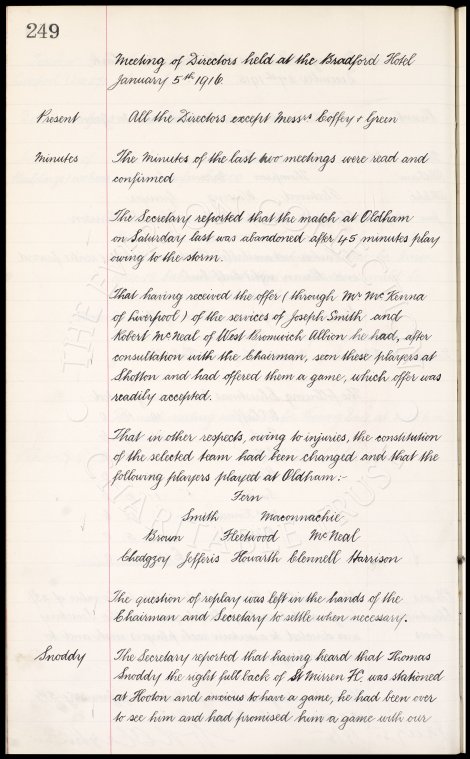 249
Meeting of Directors held at the Bradford Hotel
January 5th 1916.
Present All the Directors except Messrs Coffey & Green
Minutes The Minutes of the last two meetings were read and
confirmed
The Secretary reported that the match at Oldham
on Saturday last was abandoned after 45 minutes play
owing to the storm.
That having received the offer (through Mr McKenna
of Liverpool) of the services of Joseph Smith and
Robert McNeal of West Bromwich Albion he had, after
consultation with the Chairman, seen these players at
Shotton and had offered them a game, which offer was
readily accepted.
That in other respects, owing to injuries, the constitution
of the selected team had been changed and that the
following players played at Oldham:-
Fern
Smith Maconnachie
Brown Fleetwood McNeal
Chedgzoy Jefferis Howarth Clennell Harrison
The question of replay was left in the hands of the
Chairman and Secretary to settle when necessary.
Snoddy The Secretary reported that having heard that Thomas
Snoddy the right full back of St Mirren FC. was stationed
at Hooton and anxious to have a game, he had been over
to see him and had promised him a game with our